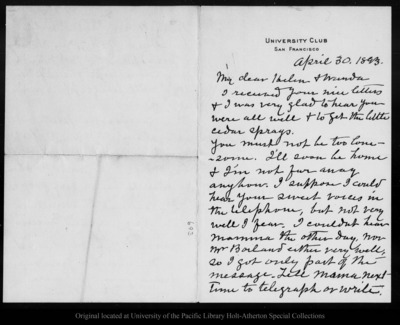 UNIVERSITY CLUB
SAN FRANCISCO
April 30. 1893.
My dear Helen & Wanda
I received your nice letters
& I was very glad to hear you
were all well & to get the little
cedar sprays.
You must not be too lone-
-some. I'll soon be home
& I'm not far away
anyhow. I suppose I could
hear your sweet voices in
the telephone, but not very
well I fear. I couldnt hear
Mamma the other day, nor
Mr Borland either very well,
so I got only part of the
message. Tell Mama next
time to telegraph or write.
Original located at University of the Pacific Library Holt-Atherton Special Collections